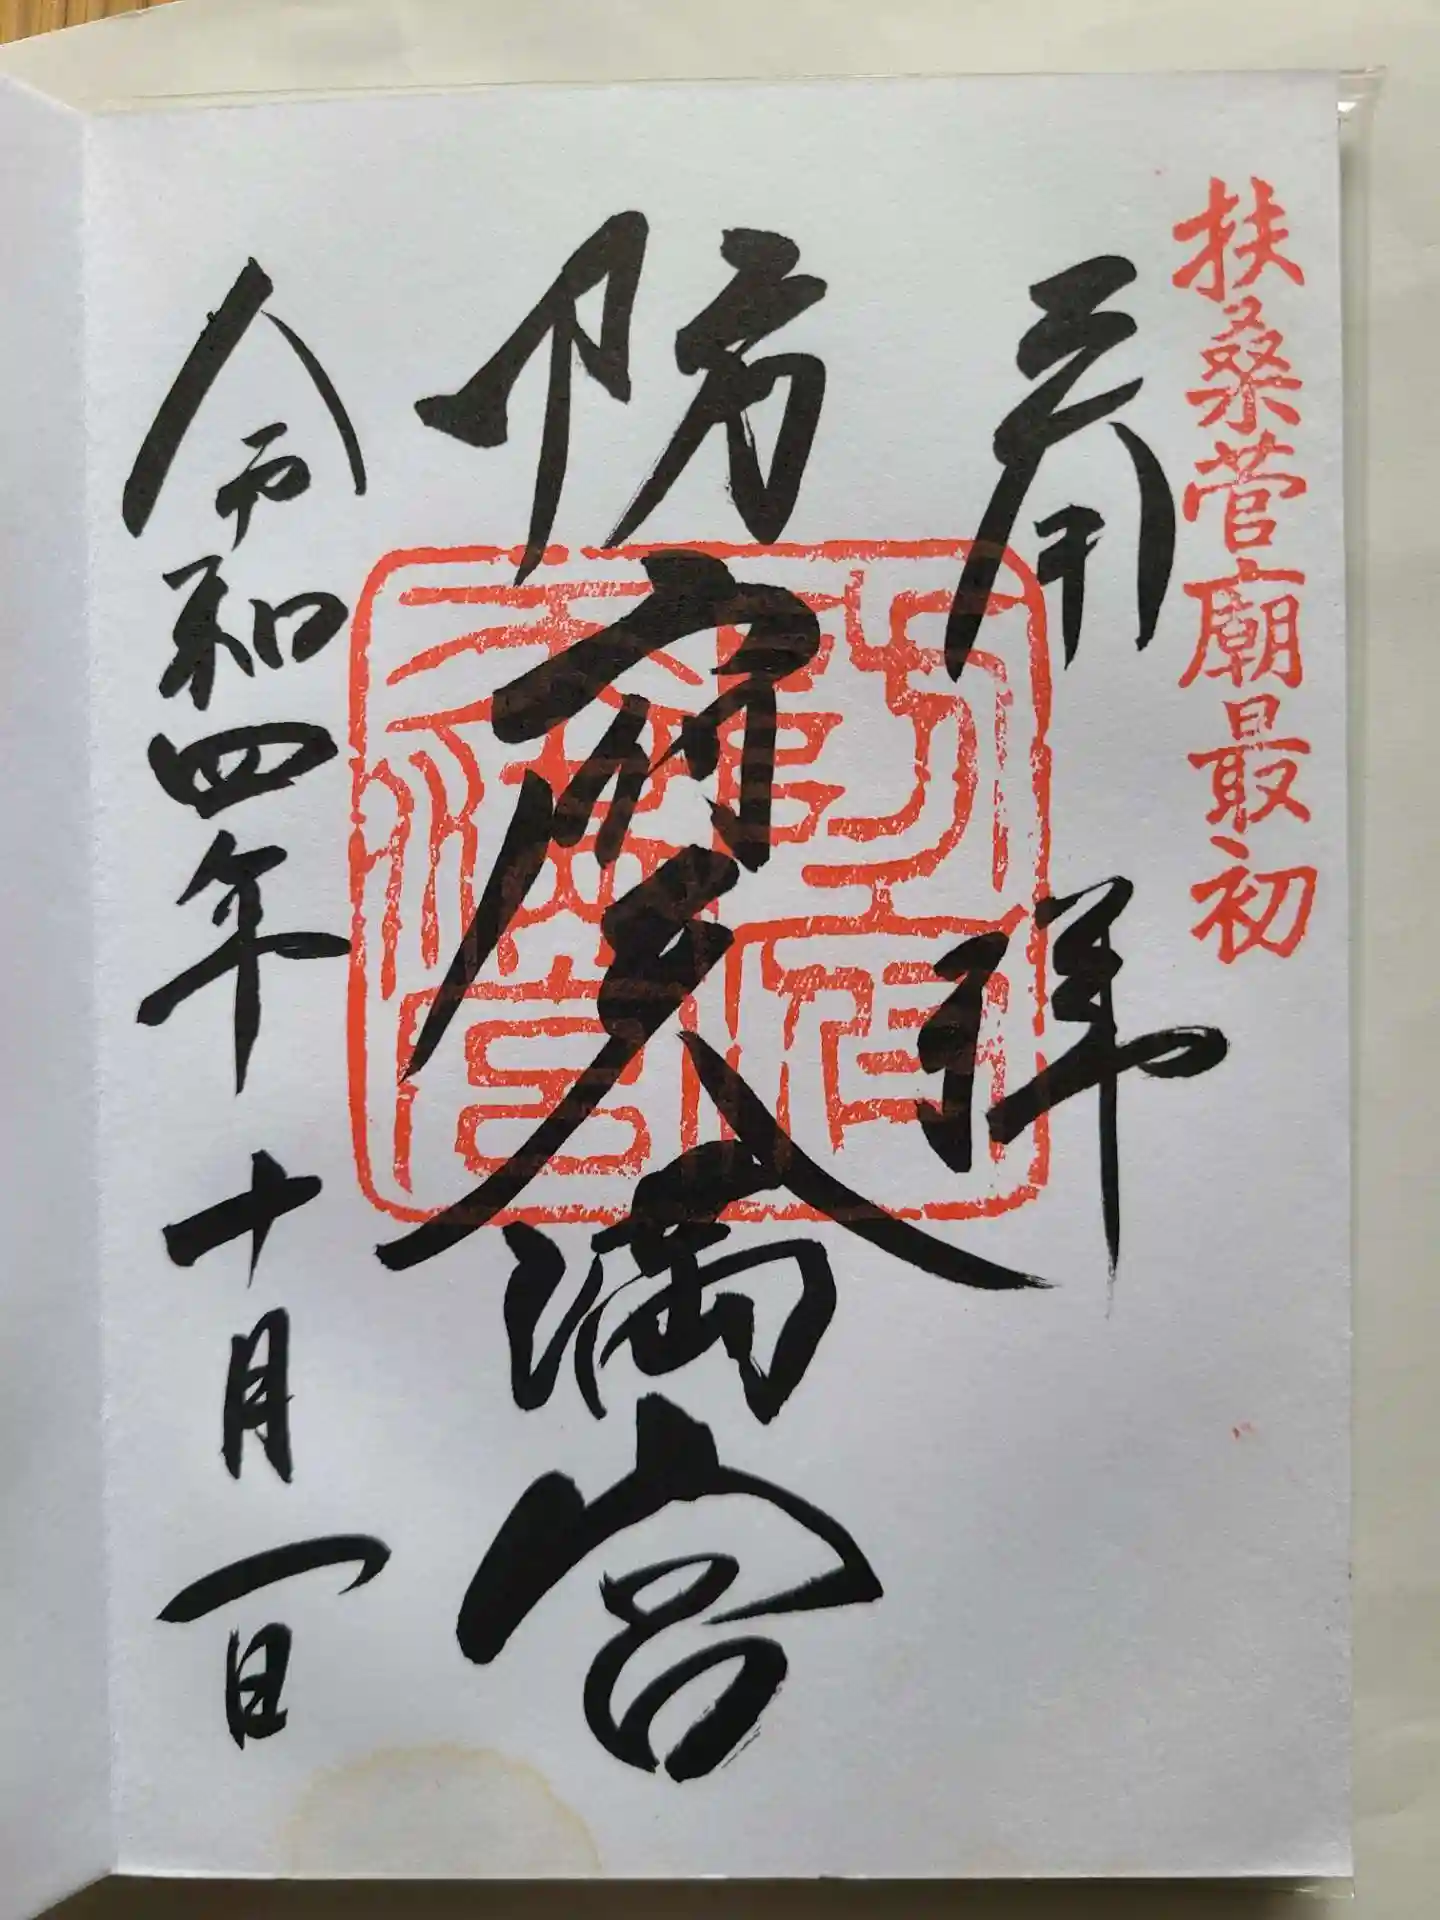 扶桑菅廟最初
奉拝
防府天満宮
令和四年十月一日
防府天満宮